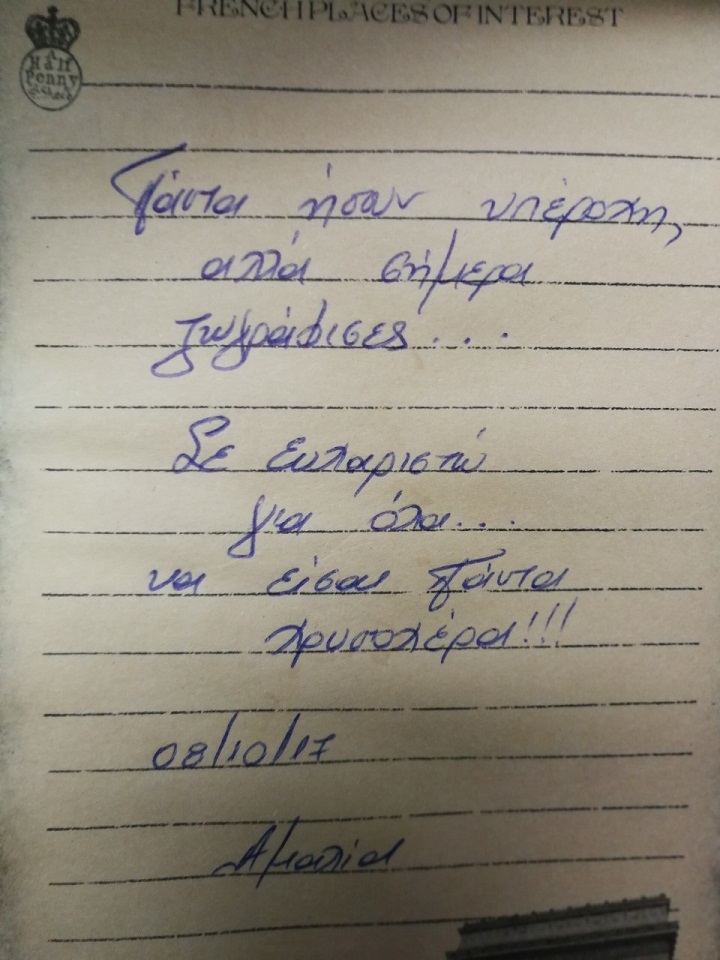 FRENCH PLACES OF INTEREST
A
Half
Penny
Πάντα ήσουν υπέροχη,
αλλά σήμερα
ζωγράφισες...
Σε ευχαριστώ
για όλα...
να είσαι πάντα
χρυσοχέρα!!!
08/10/17
Αμαλία